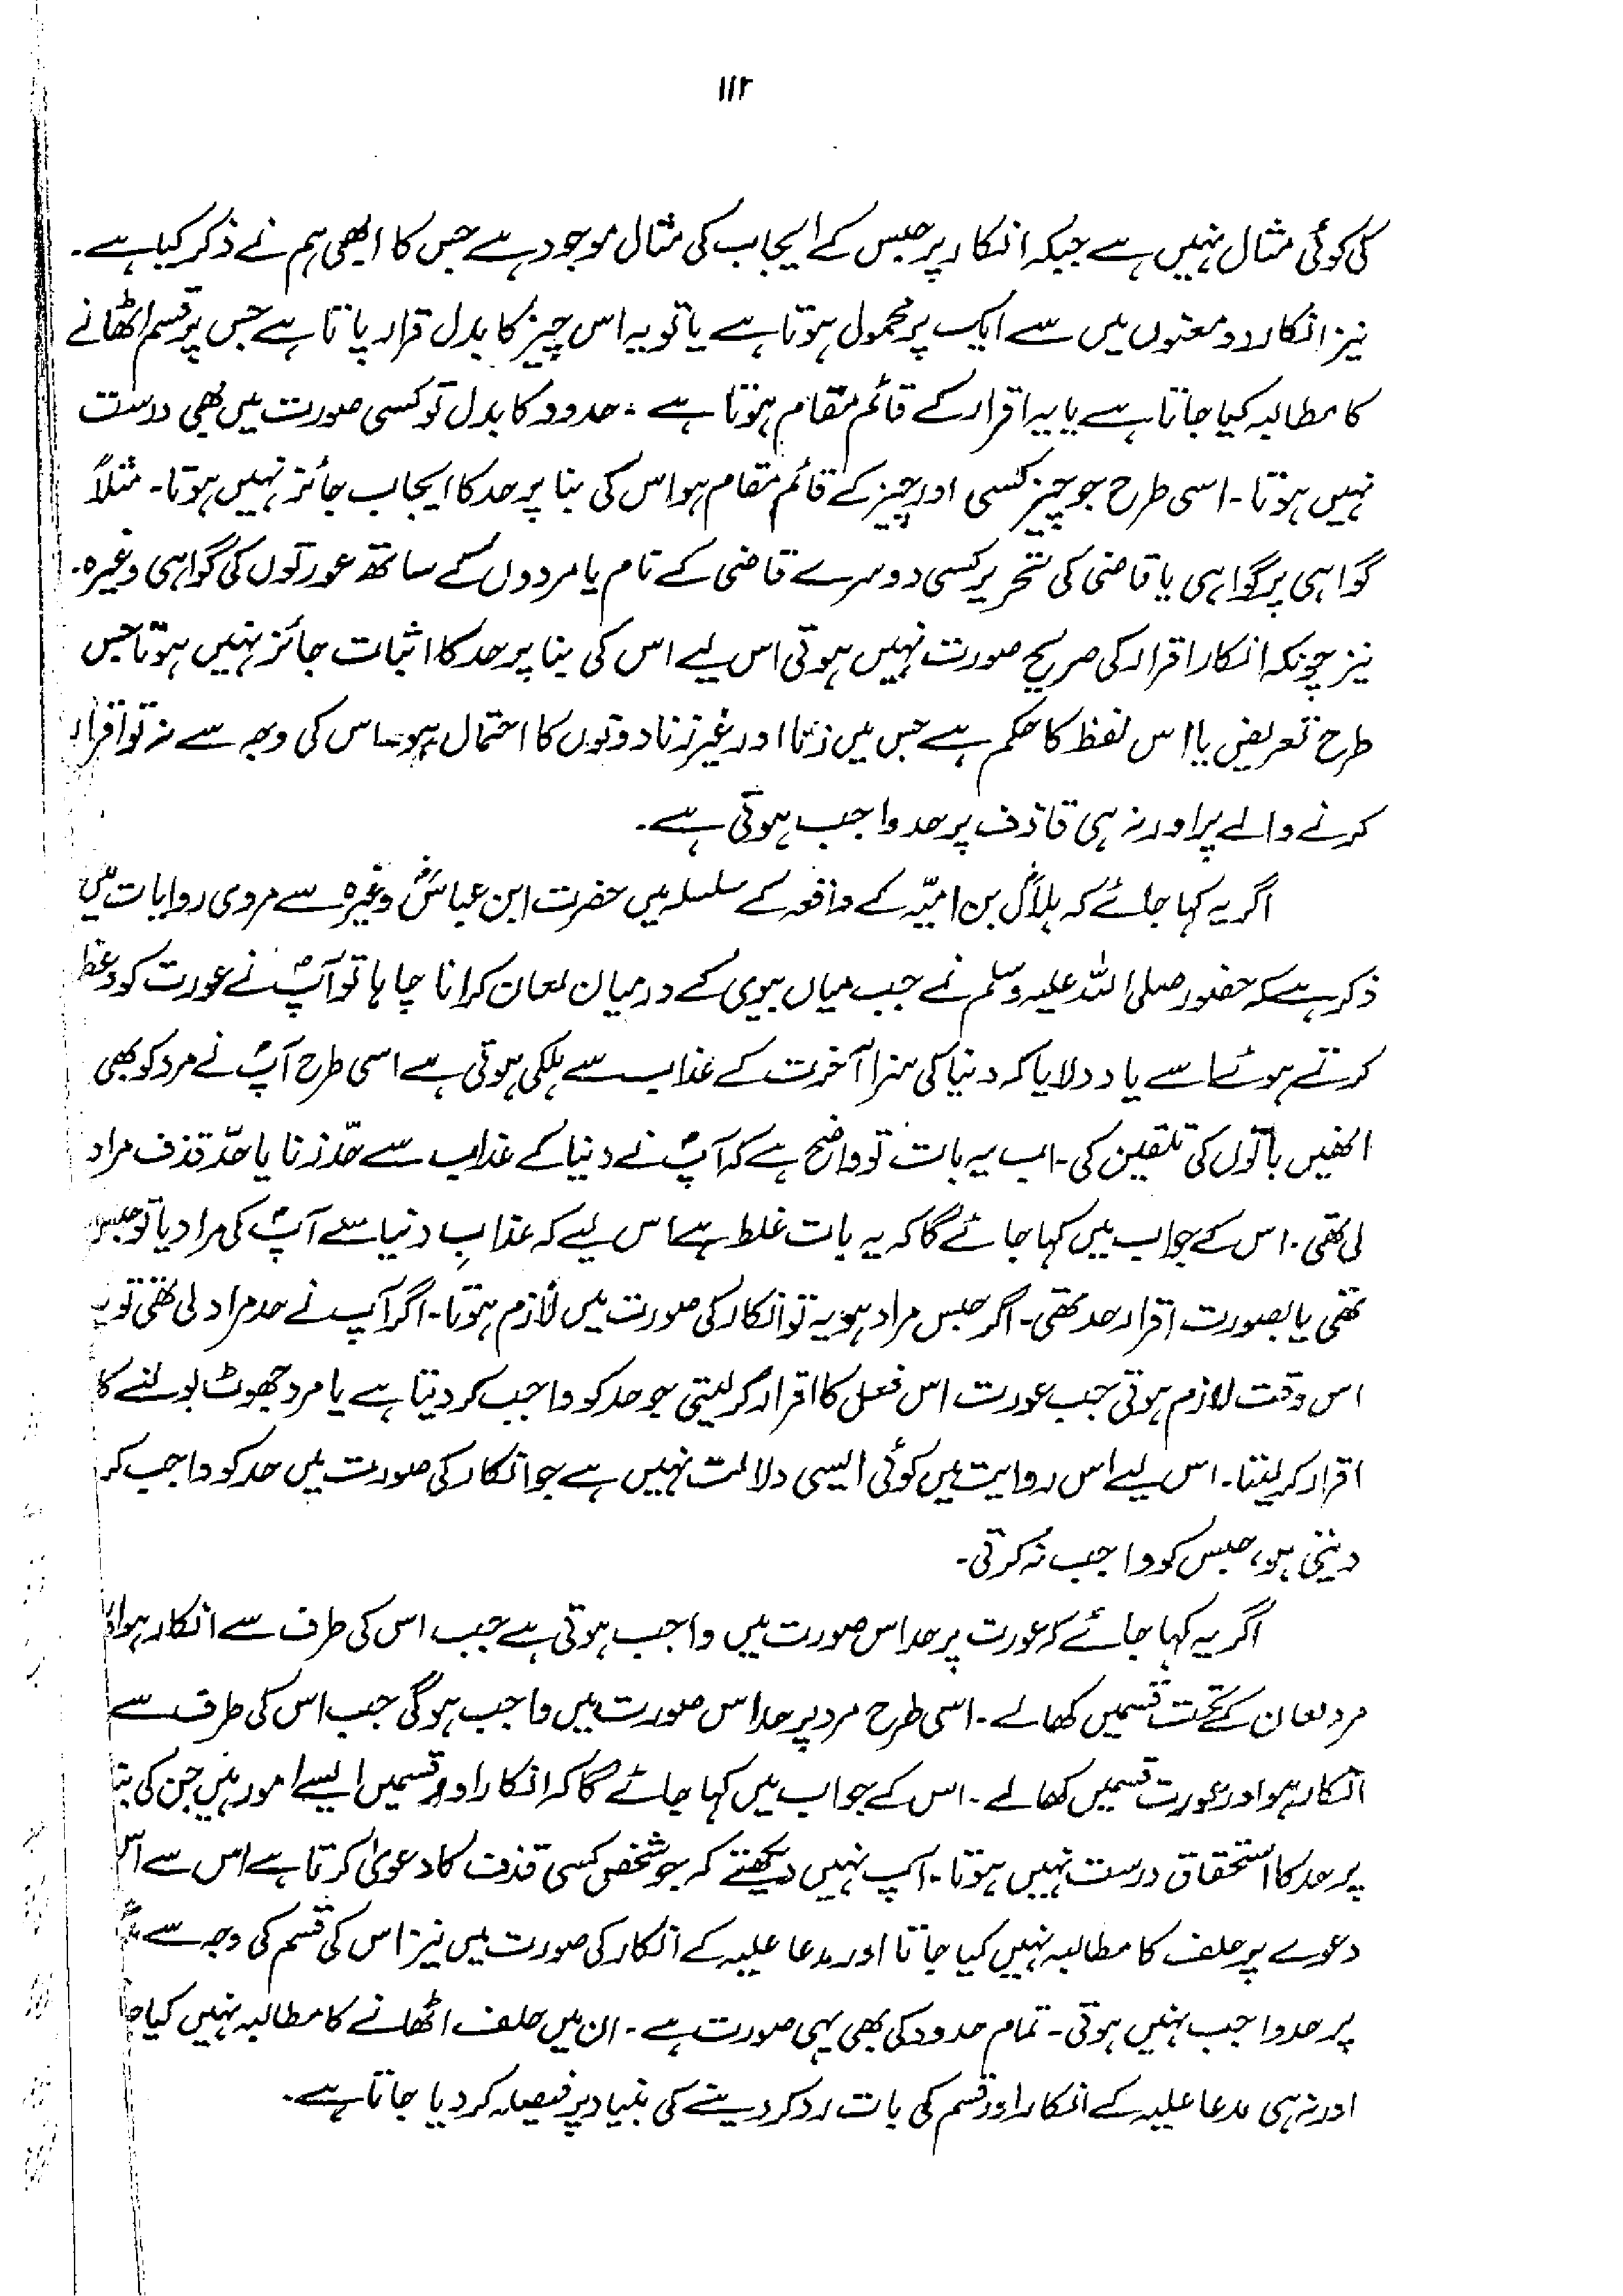 ۱۱۲
کی کوئی مثال نہیں ہے جبکہ انکار پر حبس کے ایجاب کی مثال موجود ہے جس کا ابھی ہم نے ذکر کیا ہے۔
نیز انکار دو معنوں میں سے ایک پر محمول ہوتا ہے یا تو یہ اس چیز کا بدل قرار پاتا ہے جس پر قسم اٹھانے
کا مطالبہ کیا جاتا ہے یا یہ اقرار کے قائم مقام ہوتا ہے ۔ حدود کا بدل تو کسی صورت میں بھی درست
نہیں ہوتا۔ اسی طرح جو چیز کسی اور چیز کے قائم مقام ہو اس کی بنا پر حد کا ایجاب جائز نہیں ہوتا۔ مثلاً
گواہی پر گواہی یا قاضی کی تحریر کسی دوسرے قاضی کے نام یا مردوں کے ساتھ عورتوں کی گواہی وغیرہ۔
نیز چونکہ انکار اقرار کی صریح صورت نہیں ہوتی اس لیے اس کی بنا پر حد کا اثبات جائز نہیں ہوتا جس
طرح تعریض یا اس لفظ کا حکم ہے جس میں زنا اور غیر زنا دونوں کا احتمال ہو۔ اس کی وجہ سے نہ تو اقرار
کرنے والے پر اور نہ ہی قاذف پر حد واجب ہوتی ہے۔
اگر یہ کہا جائے کہ ہلالؓ بن امیّہ کے واقعہ کے سلسلہ میں حضرت ابن عباسؓ وغیرہ سے مروی روایات میں
ذکر ہے کہ حضور صلی اللہ علیہ وسلم نے جب میاں بیوی کے درمیان لعان کرانا چاہا تو آپؐ نے عورت کو وعظ
کرتے ہوئے اسے یاد دلایا کہ دنیا کی سزا آخرت کے عذاب سے ہلکی ہوتی ہے اسی طرح آپؐ نے مرد کو بھی
انھیں باتوں کی تلقین کی۔ اب یہ بات تو واضح ہے کہ آپؐ نے دنیا کے عذاب سے حدّ زنا یا حدّ قذف مراد
لی تھی۔ اس کے جواب میں کہا جائے گا کہ یہ بات غلط ہے اس لیے کہ عذابِ دنیا سے آپؐ کی مراد یا تو حبس
تھی یا بصورت اقرار حد تھی۔ اگر حبس مراد ہو یہ تو انکار کی صورت میں لازم ہوتا۔ اگر آپ نے حد مراد لی تھی تو یہ
اس وقت لازم ہوتی جب عورت اس فعل کا اقرار کر لیتی جو حد کو واجب کر دیتا ہے یا مرد جھوٹ بولنے کا
اقرار کر لیتا۔ اس لیے اس روایت میں کوئی ایسی دلالت نہیں ہے جو انکار کی صورت میں حد کو واجب کر
دیتی ہو، حبس کو واجب نہ کرتی۔
اگر یہ کہا جائے کہ عورت پر حد اس صورت میں واجب ہوتی ہے جب اس کی طرف سے انکار ہو اور
مرد لعان کے تحت قسمیں کھالے۔ اسی طرح مرد پر حد اس صورت میں واجب ہوگی جب اس کی طرف سے
انکار ہو اور عورت قسمیں کھالے۔ اس کے جواب میں کہا جائے گا کہ انکار اور قسمیں ایسے امور ہیں جن کی بنا
پر حد کا استحقاق درست نہیں ہوتا۔ آپ نہیں دیکھتے کہ جو شخص کسی قذف کا دعویٰ کرتا ہے اس سے اس
دعوے پر حلف کا مطالبہ نہیں کیا جاتا اور مدعا علیہ کے انکار کی صورت میں نیز اس کی قسم کی وجہ سے
پر حد واجب نہیں ہوتی۔ تمام حدود کی بھی یہی صورت ہے۔ ان میں حلف اٹھانے کا مطالبہ نہیں کیا
اور نہ ہی مدعا علیہ کے انکار اور قسم کی بات رد کر دینے کی بنیاد پر فیصلہ کر دیا جاتا ہے۔